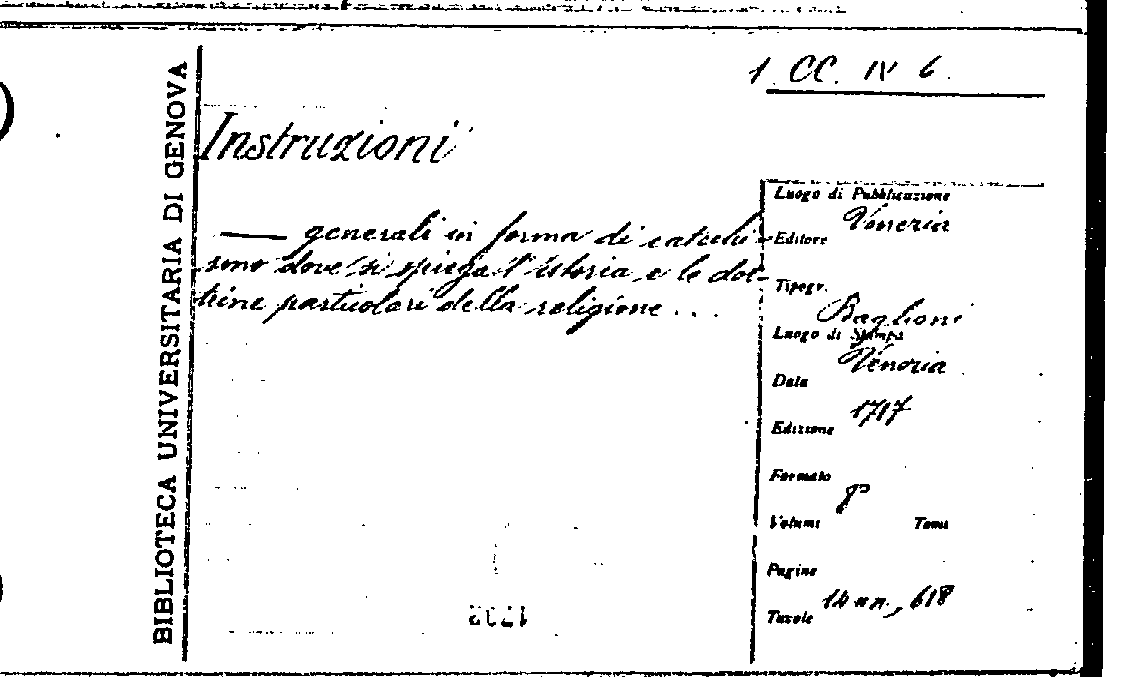 BIBLIOTECA UNIVERSITARIA DI GENOVA
1 CC. IV 6.
Instruzioni
— generali in forma di catechi-
smo dove si spiega l'istoria e le dot-
trine particolari della religione ...
Luogo di Pubblicazione
Venezia
Editore
Tipogr.
Baglioni
Luogo di Stampa
Venezia
Data
1717
Edizione
Formato
8°
Volumi Tomi
Pagine
14 nn., 618
Tavole